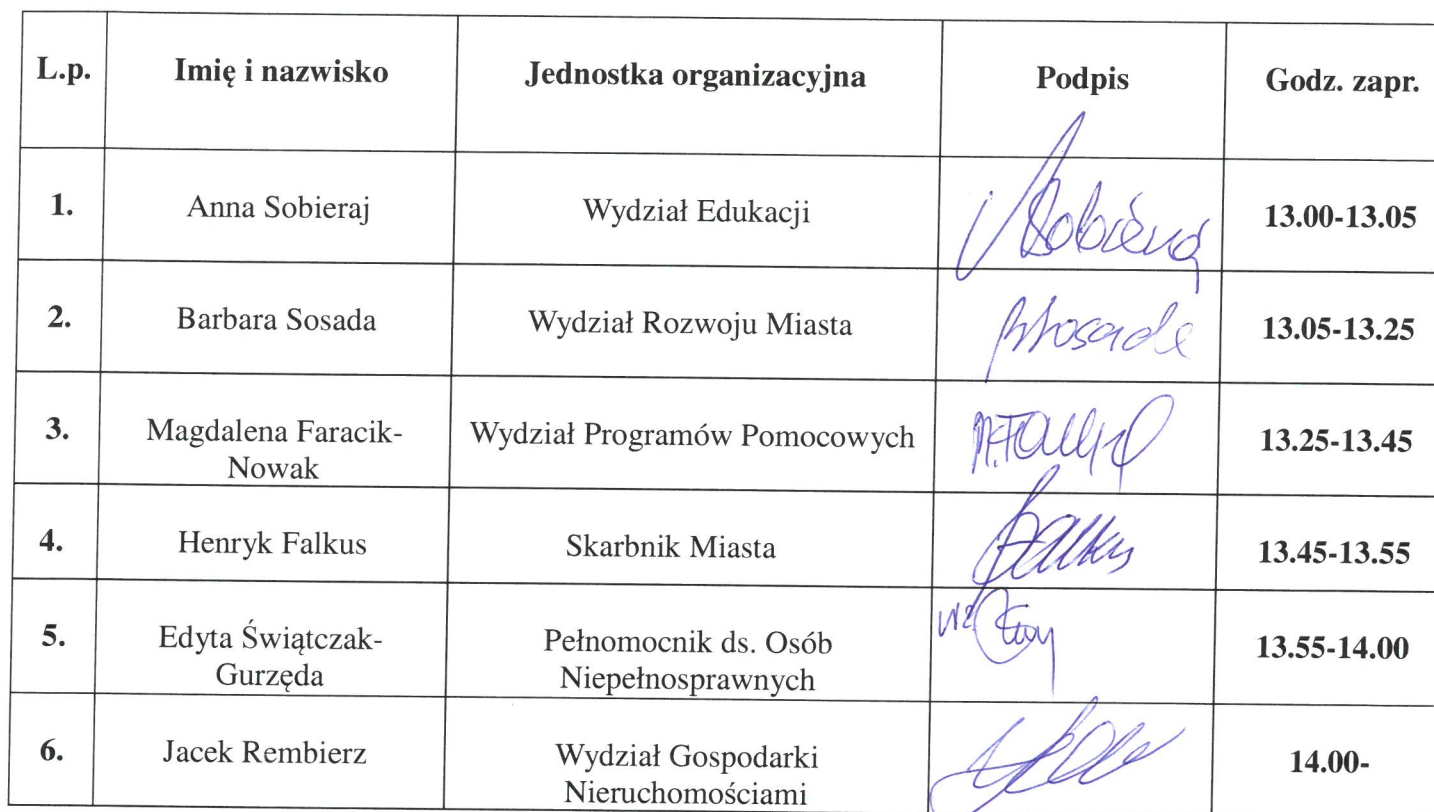 L.p. Imię i nazwisko Jednostka organizacyjna Podpis Godz. zapr.
1. Anna Sobieraj Wydział Edukacji 13.00-13.05
2. Barbara Sosada Wydział Rozwoju Miasta 13.05-13.25
3. Magdalena Faracik- Wydział Programów Pomocowych 13.25-13.45
Nowak
4. Henryk Falkus Skarbnik Miasta Falkus 13.45-13.55
5. Edyta Świątczak- Pełnomocnik ds. Osób 13.55-14.00
Gurzęda Niepełnosprawnych
6. Jacek Rembierz Wydział Gospodarki 14.00-
Nieruchomościami